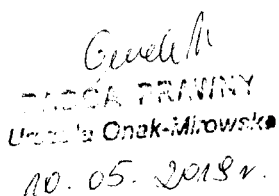 RADCA PRAWNY
Urszula Onak-Mirowska
10. 05. 2019 r.